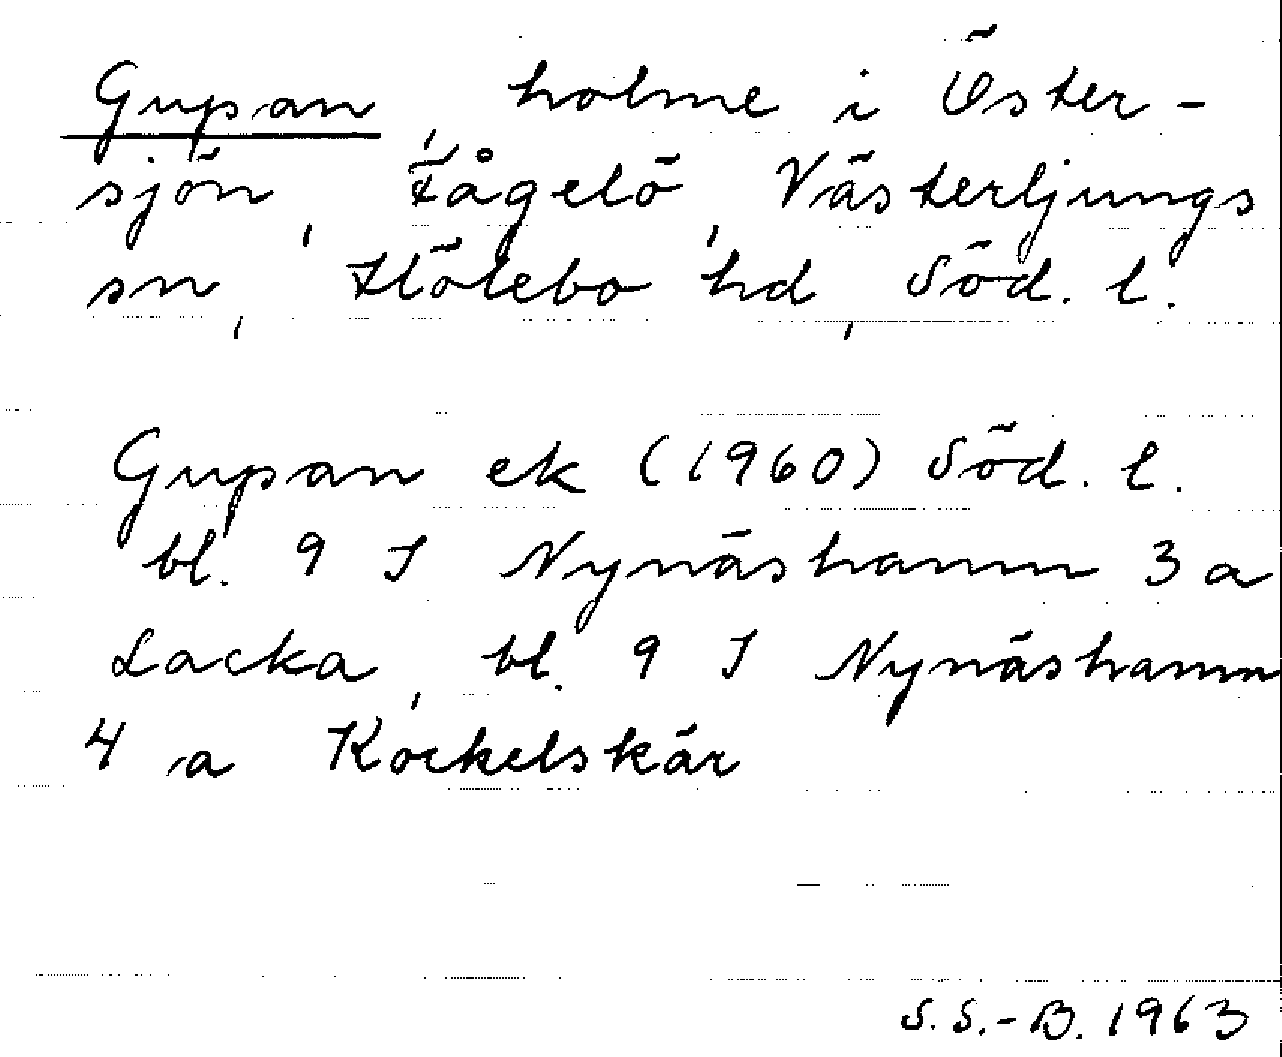 Gupan, holme i Öster-
sjön, Fågelö, Västerljungs
sn, Hölebo hd, Söd. l.
Gupan ek (1960) Söd. l.
bl. 9 I Nynäshamn 3 a
Lacka, bl. 9 I Nynäshamn
4 a Kockelskär
S.S.-B. 1963